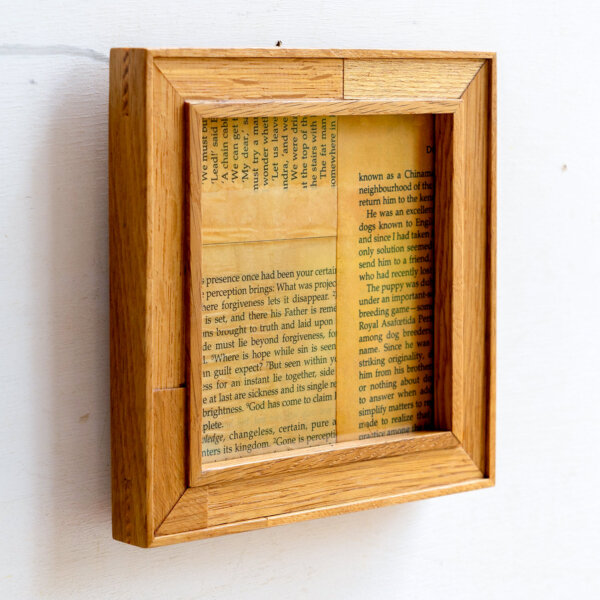 We must
'Lead!' said
'A chain cable
'We can get
'My dear,' sa
must try a ma
wonder whethe
'Let us leave
andra, 'and we
We were
at the top of the
the stairs with
'The fat man
somewhere in
presence once had been your certain
perception brings: What was
ere forgiveness lets it disappear.
is set, and there his Father is
ns brought to truth and laid upon
de must lie beyond forgiveness, for
²Where is hope while sin is seen
n guilt expect? ⁷But seen within
ess for an instant lie together, side
e at last are sickness and its single
brightness. ⁴God has come to claim
plete.
ledge, changeless, certain, pure a
nters its kingdom. ²Gone is percepti
D
known as a Chinam
neighbourhood of the
return him to the ken
He was an excellen
dogs known to Engl
and since I had taken
only solution seemed
send him to a friend,
who had recently los
The puppy was dul
under an important-s
breeding game—som
Royal Asafœtida Per
among dog breeders
name. Since he was
striking originality,
him from his brother
or nothing about d
to answer when ad
simplify matters to re
made to realize that
practice among th